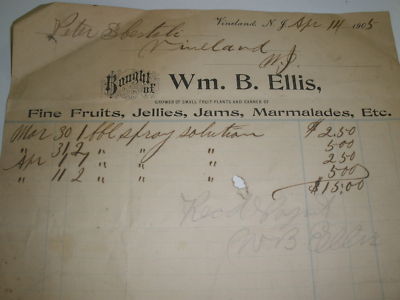 Vineland, N. J. Apr 14 1905
Peter
Vineland
N.J.
Bought of Wm. B. Ellis,
GROWER OF SMALL FRUIT PLANTS AND CANNER OF
Fine Fruits, Jellies, Jams, Marmalades, Etc.
Mar 30 1 bbl spray solution $2.50
" 31 2 " " " 5.00
Apr 1 " " " 2.50
" 11 2 " " " 5.00
$15.00
Rec'd Paym't
W B Ellis